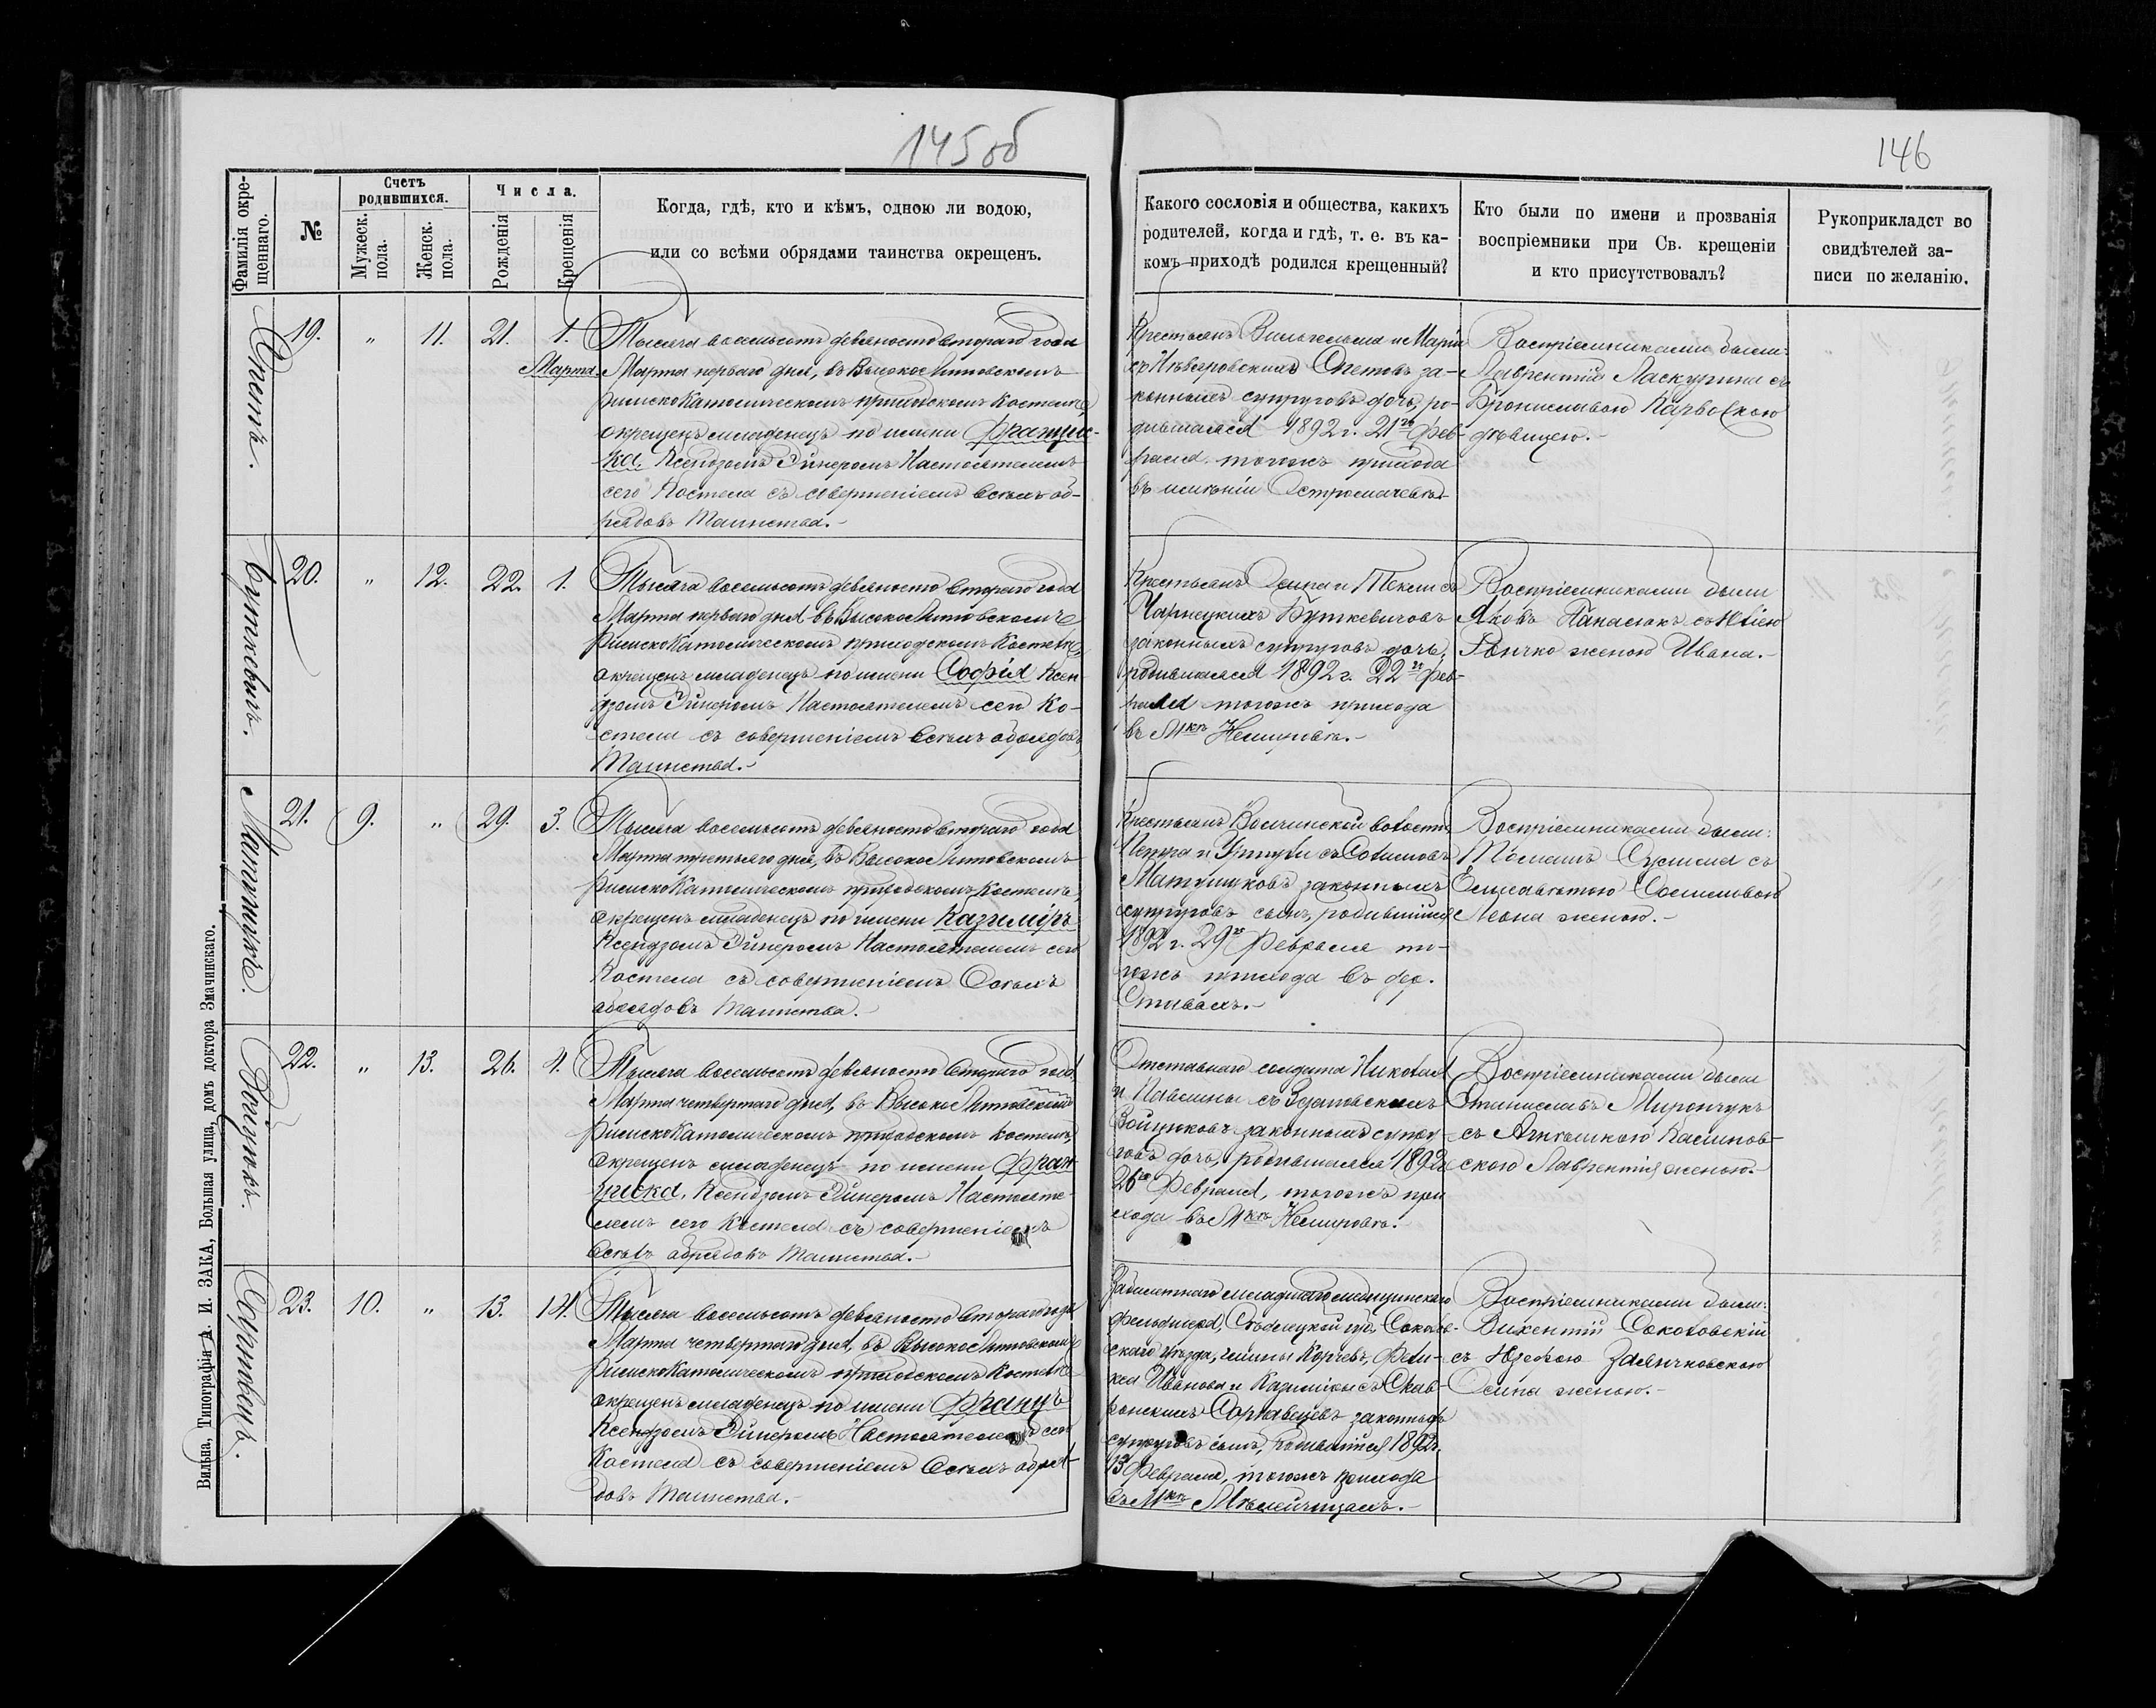 145 об
146
Фамилія окре-
щеннаго.
№
Счетъ
родившихся.
Мужеск.
пола.
Женск.
пола.
Числа.
Рожденія
Крещенія
Когда, гдѣ, кто и кѣмъ, одною ли водою,
или со всѣми обрядами таинства окрещенъ.
Какого сословія и общества, какихъ
родителей, когда и гдѣ, т. е. въ ка-
комъ приходѣ родился крещенный?
Кто были по имени и прозванія
воспріемники при Св. крещеніи
и кто присутствовалъ?
Рукоприкладст во
свидѣтелей за-
писи по желанію.
19.
"
11.
21.
1.
Марта
Тысяча восемьсотъ девяносто втораго года
Марта перваго дня, въ Высоко Литовскомъ
Римско Католическомъ приходскомъ Костелѣ,
окрещенъ младенецъ по имени Францис-
ка, Ксендзомъ Эйнеромъ Настоятелемъ
сего Костела съ совершеніемъ всѣхъ об-
рядовъ Таинства.-
Крестьянъ Вильгельма и Маріи
законныхъ супруговъ дочь, ро-
дившаяся 1892 г. 21го Фев-
раля тогожъ прихода
въ имѣніи Остромечево
Воспріемниками были:
Лаврентій съ
Брониславою
дѣвицею.-
Буткевичъ.
20.
"
12.
22.
1.
Тысяча восемьсотъ девяносто втораго года
Марта перваго дня въ Высоко Литовскомъ
Римско Католическомъ приходскомъ Костелѣ,
окрещенъ младенецъ по имени Софія Ксен-
дзомъ Эйнеромъ Настоятелемъ сего Ко-
стела съ совершеніемъ всѣхъ обрядовъ
Таинства.-
Крестьянъ Осипа и Теклии съ
Чарнецкихъ Буткевичовъ
законныхъ супруговъ дочь,
родившаяся 1892 г. 22го Фев-
раля тогожъ прихода
въ Мкѣ Немировѣ.-
Воспріемниками были
Яковъ Панасюкъ съ
женою Ивана.-
21.
9.
"
29.
3.
Тысяча восемьсотъ девяносто втораго года
Марта третьяго дня, въ Высоко Литовскомъ
Римско Католическомъ приходскомъ Костелѣ,
окрещенъ младенецъ по имени Казиміръ
Ксендзомъ Эйнеромъ Настоятелемъ сего
Костела съ совершеніемъ всѣхъ
обрядовъ Таинства.
Крестьянъ Волчинской волости
Петра и съ
законныхъ
супруговъ сынъ, родившійся
1892 г. 29го Февраля то-
гожъ прихода въ дер.
Ставахъ.-
Воспріемниками были:
Томашъ съ
Елисаветою
Леона женою.-
Войцюкъ.
22.
"
13.
26.
4.
Тысяча восемьсотъ девяносто втораго года
Марта четвертаго дня, въ Высоко Литовскомъ
Римско Католическомъ приходскомъ Костелѣ,
окрещенъ младенецъ по имени Фран-
циска, Ксендзомъ Эйнеромъ Настояте-
лемъ сего Костела съ совершеніемъ
всѣхъ обрядовъ Таинства.-
Отставнаго солдата Николая
и Павлины съ
Войцюковъ законныхъ супру-
говъ дочь, родившаяся 1892 г
26го Февраля, тогожъ при
хода въ Мкѣ Немировѣ.
Воспріемниками были
Станиславъ Мирончукъ
съ Агнешкою Калинов-
скою Лаврентія женою.-
23.
10.
"
13.
14.
Тысяча восемьсотъ девяносто втораго года
Марта четвертаго дня, въ Высоко Литовскомъ
Римско Католическомъ приходскомъ Костелѣ
окрещенъ младенецъ по имени Францъ
Ксендзомъ Эйнеромъ Настоятелемъ сего
Костела съ совершеніемъ всѣхъ обря-
довъ Таинства.-
младшаго медицинскаго
фельдшера, Сѣдлецкой губ. Соколов-
скаго уѣзда, гмины Корчевъ, Фели-
кса Иванова и Казиміры съ Скав-
ронскихъ законныхъ
супруговъ сынъ, родившійся 1892 г.
13 Февраля, тогожъ прихода
въ Мкѣ Мѣлейчицахъ.-
Воспріемниками были:
Викентій Соколовскій
съ Юзефою Заянчковскою
Осипа женою.-
Вильна, Типографія А. И. ЗАКА, Большая улица, домъ доктора Змачинскаго.